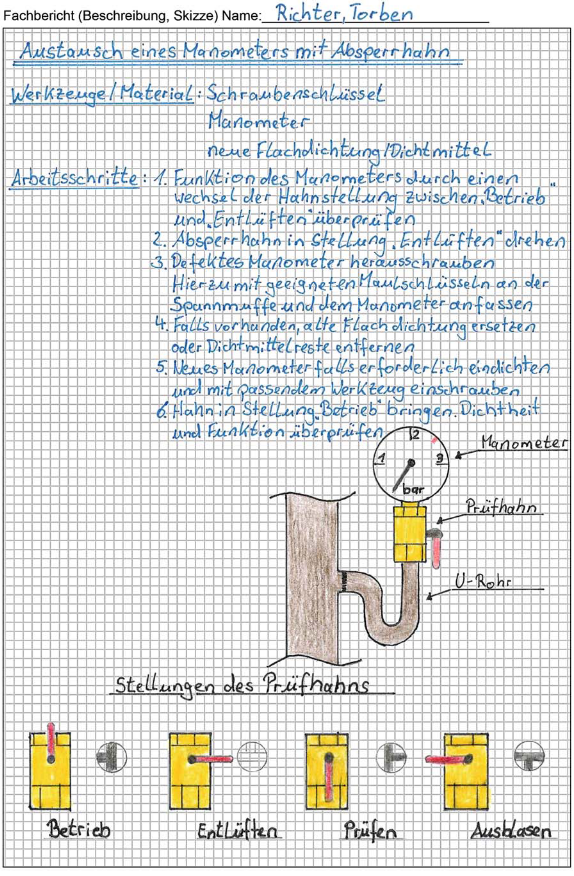 Fachbericht (Beschreibung, Skizze) Name: Richter, Torben
Austausch eines Manometers mit Absperrhahn
Werkzeuge/Material: Schraubenschlüssel
Manometer
neue Flachdichtung/Dichtmittel
Arbeitsschritte: 1. Funktion des Manometers durch einen
wechsel der Hahnstellung zwischen „Betrieb"
und „Entlüften" überprüfen
2. Absperrhahn in Stellung „Entlüften" drehen
3. Defektes Manometer herausschrauben
Hierzu mit geeigneten Maulschlüsseln an der
Spannmuffe und dem Manometer anfassen
4. Falls vorhanden, alte Flachdichtung ersetzen
oder Dichtmittelreste entfernen
5. Neues Manometer falls erforderlich eindichten
und mit passendem Werkzeug einschrauben
6. Hahn in Stellung „Betrieb" bringen. Dichtheit
und Funktion überprüfen
1 2 3
bar
Manometer
Prüfhahn
U-Rohr
Stellungen des Prüfhahns
Betrieb Entlüften Prüfen Ausblasen